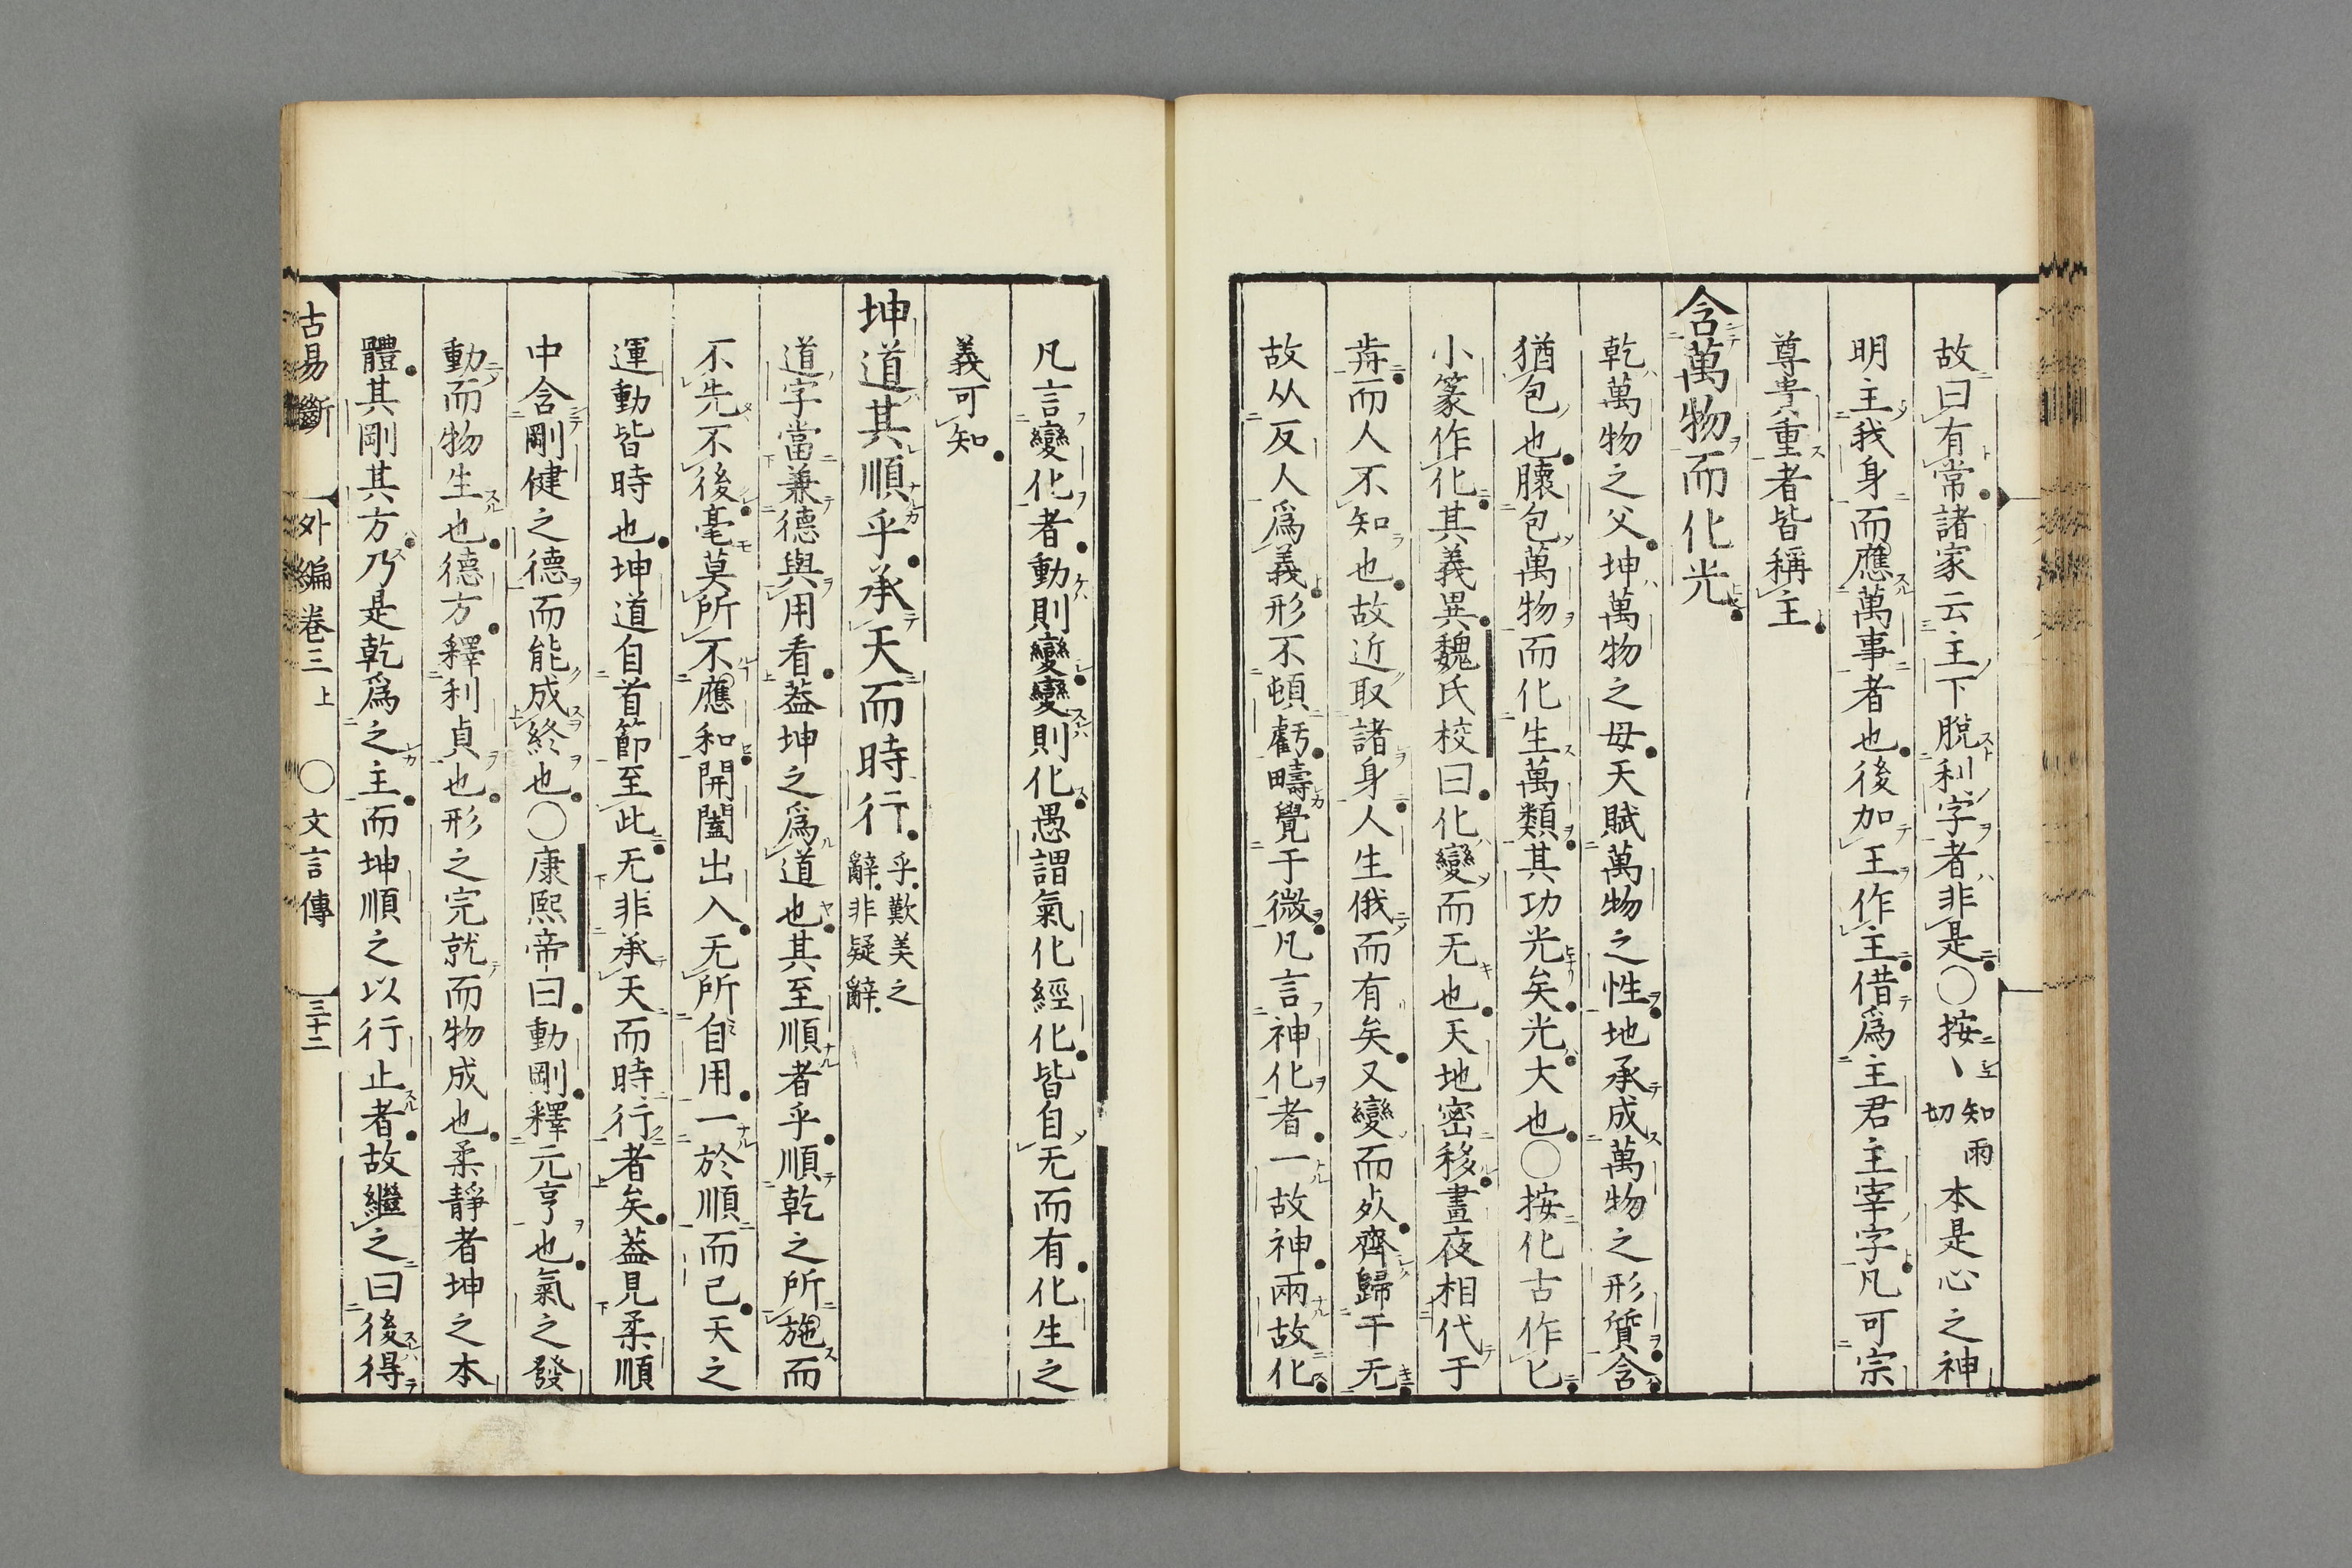 故曰有常諸家云主下脫利字者非是〇按丶知雨切本是心之神
明主我身而應萬事者也後加王作主借爲主君主宰字凡可宗
尊貴重者皆稱主
含萬物而化光
乾萬物之父坤萬物之母天賦萬物之性地承成萬物之形質含
猶包也懷包萬物而化生萬類其功光矣光大也〇按化古作匕
小篆作化其義異魏氏校曰化變而无也天地密移晝夜相代于
前而人不知也故近取諸身人生俄而有矣又變而歸于无
故从反人爲義形不頓虧疇覺于微凡言神化者一故神兩故化
凡言變化者動則變變則化愚謂氣化經化皆自无而有化生之
義可知
坤道其順乎承天而時行乎歎美之辭非疑辭
道字當兼德與用看蓋坤之爲道也其至順者乎順乾之所施而
不先不後毫莫所不應和開闔出入无所自用一於順而已天之
運動皆時也坤道自首節至此无非承天而時行者矣蓋見柔順
中含剛健之德而能成終也〇康熙帝曰動剛釋元亨也氣之發
動而物生也德方釋利貞也形之完就而物成也柔靜者坤之本
體其剛其方乃是乾爲之主而坤順之以行止者故繼之曰後得
古易斷 外編卷三上 〇文言傳 三十二